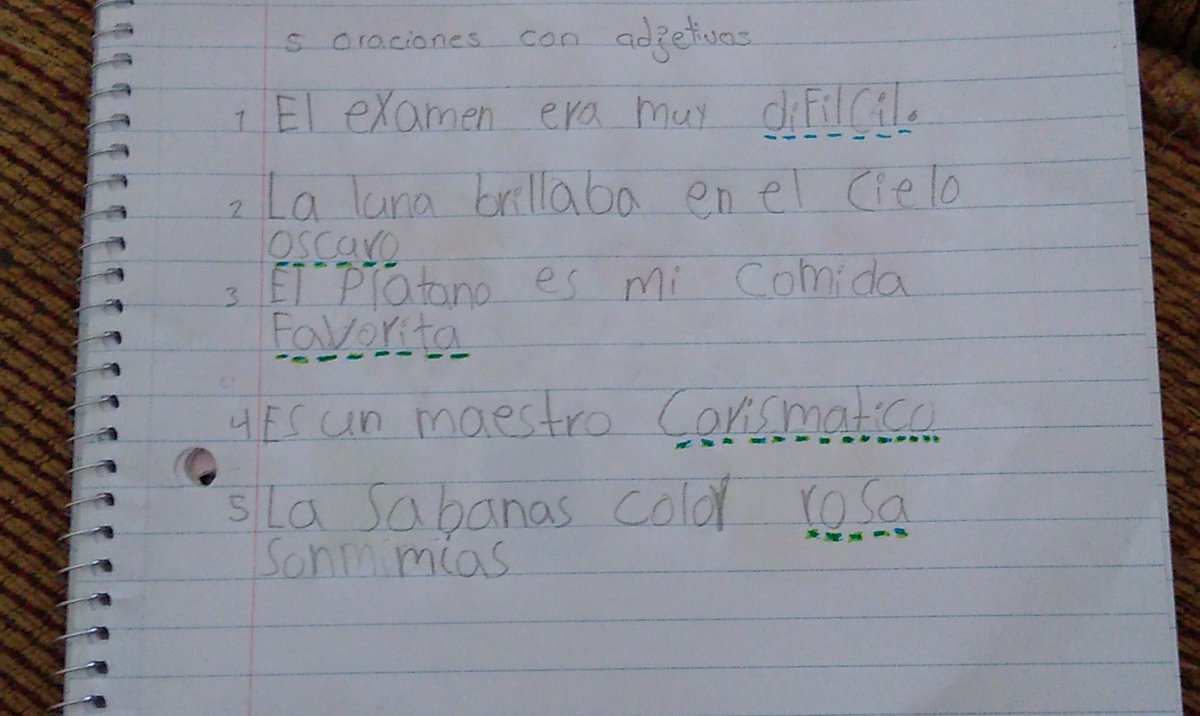 5 oraciones con adjetivos
1 El examen era muy difilcil.
2 La luna brillaba en el cielo
oscuro
3 El Platano es mi comida
Favorita
4 Es un maestro Carismatico
5 La Sabanas color rosa
son mías